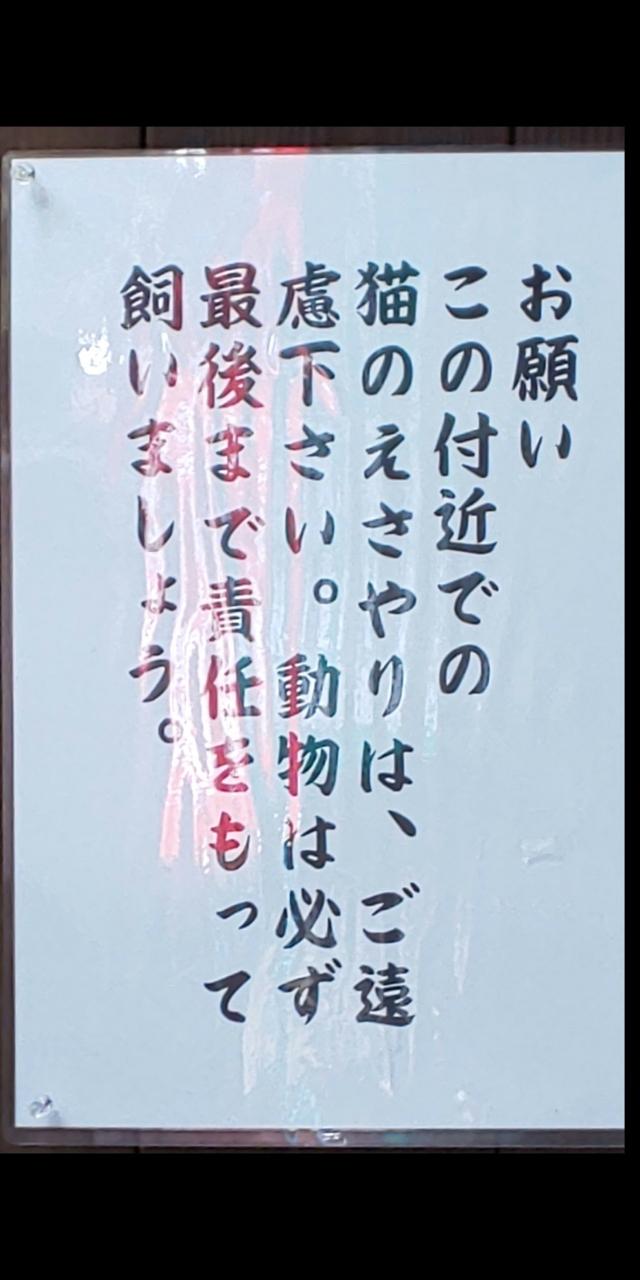 お願い
この付近での
猫のえさやりは、ご遠
慮下さい。動物は必ず
最後まで責任をもって
飼いましょう。